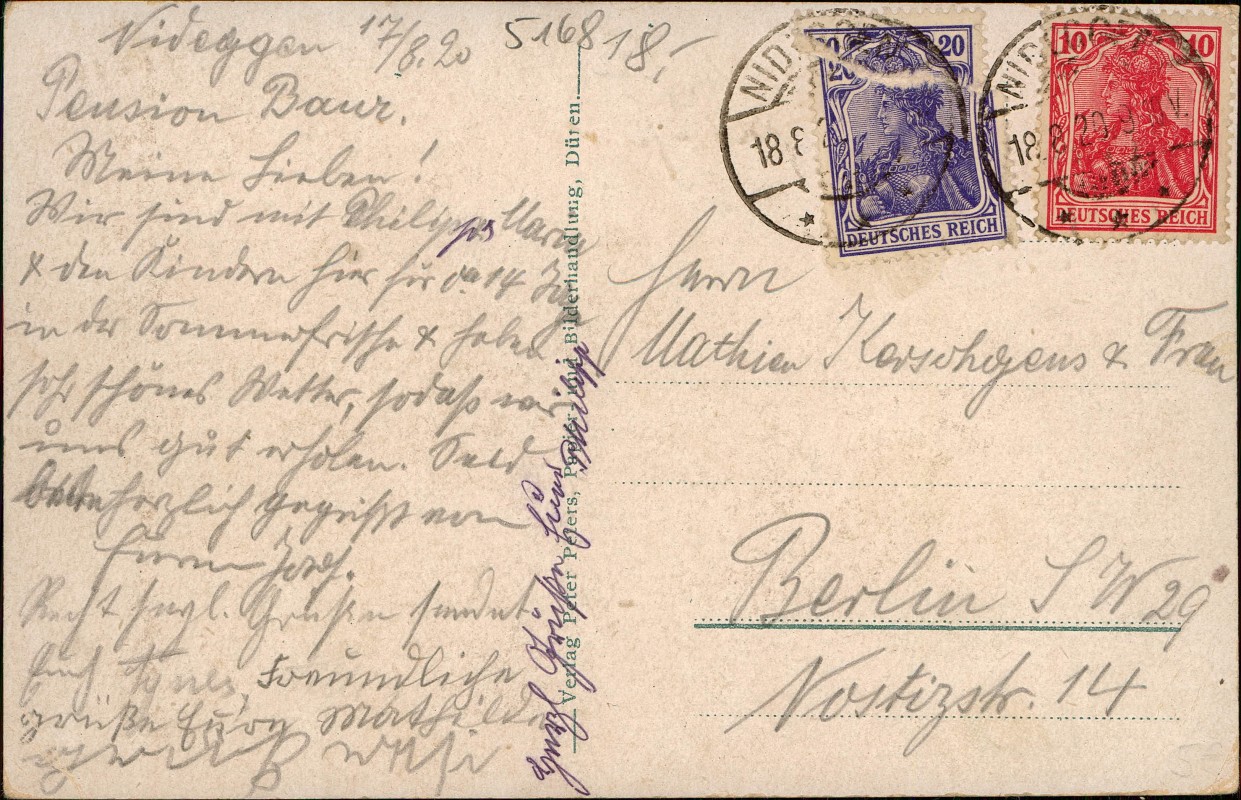 Nideggen 17/8.20
5168 18,-
Pension Baur.
Meine Lieben!
Wir sind mit Philipp, Maria
& den Kindern hier für 14
in der Sommerfrische & haben
sehr schönes Wetter, sodaß wir
uns gut erholen. Seid
herzlich gegrüßt von
Eurem Josef.
Recht herzl. Grüße sendet
Euch Agnes. Freundliche
Grüße Eure Mathilde
Herzl. Grüße Euer Philipp
Verlag Peter Peters, Papier- und Bilderhandlung, Düren.
20 20
DEUTSCHES REICH
10 10
DEUTSCHES REICH
18 8
18.8.20
Herrn
Mathieu & Frau
Berlin SW 29
Nostizstr. 14